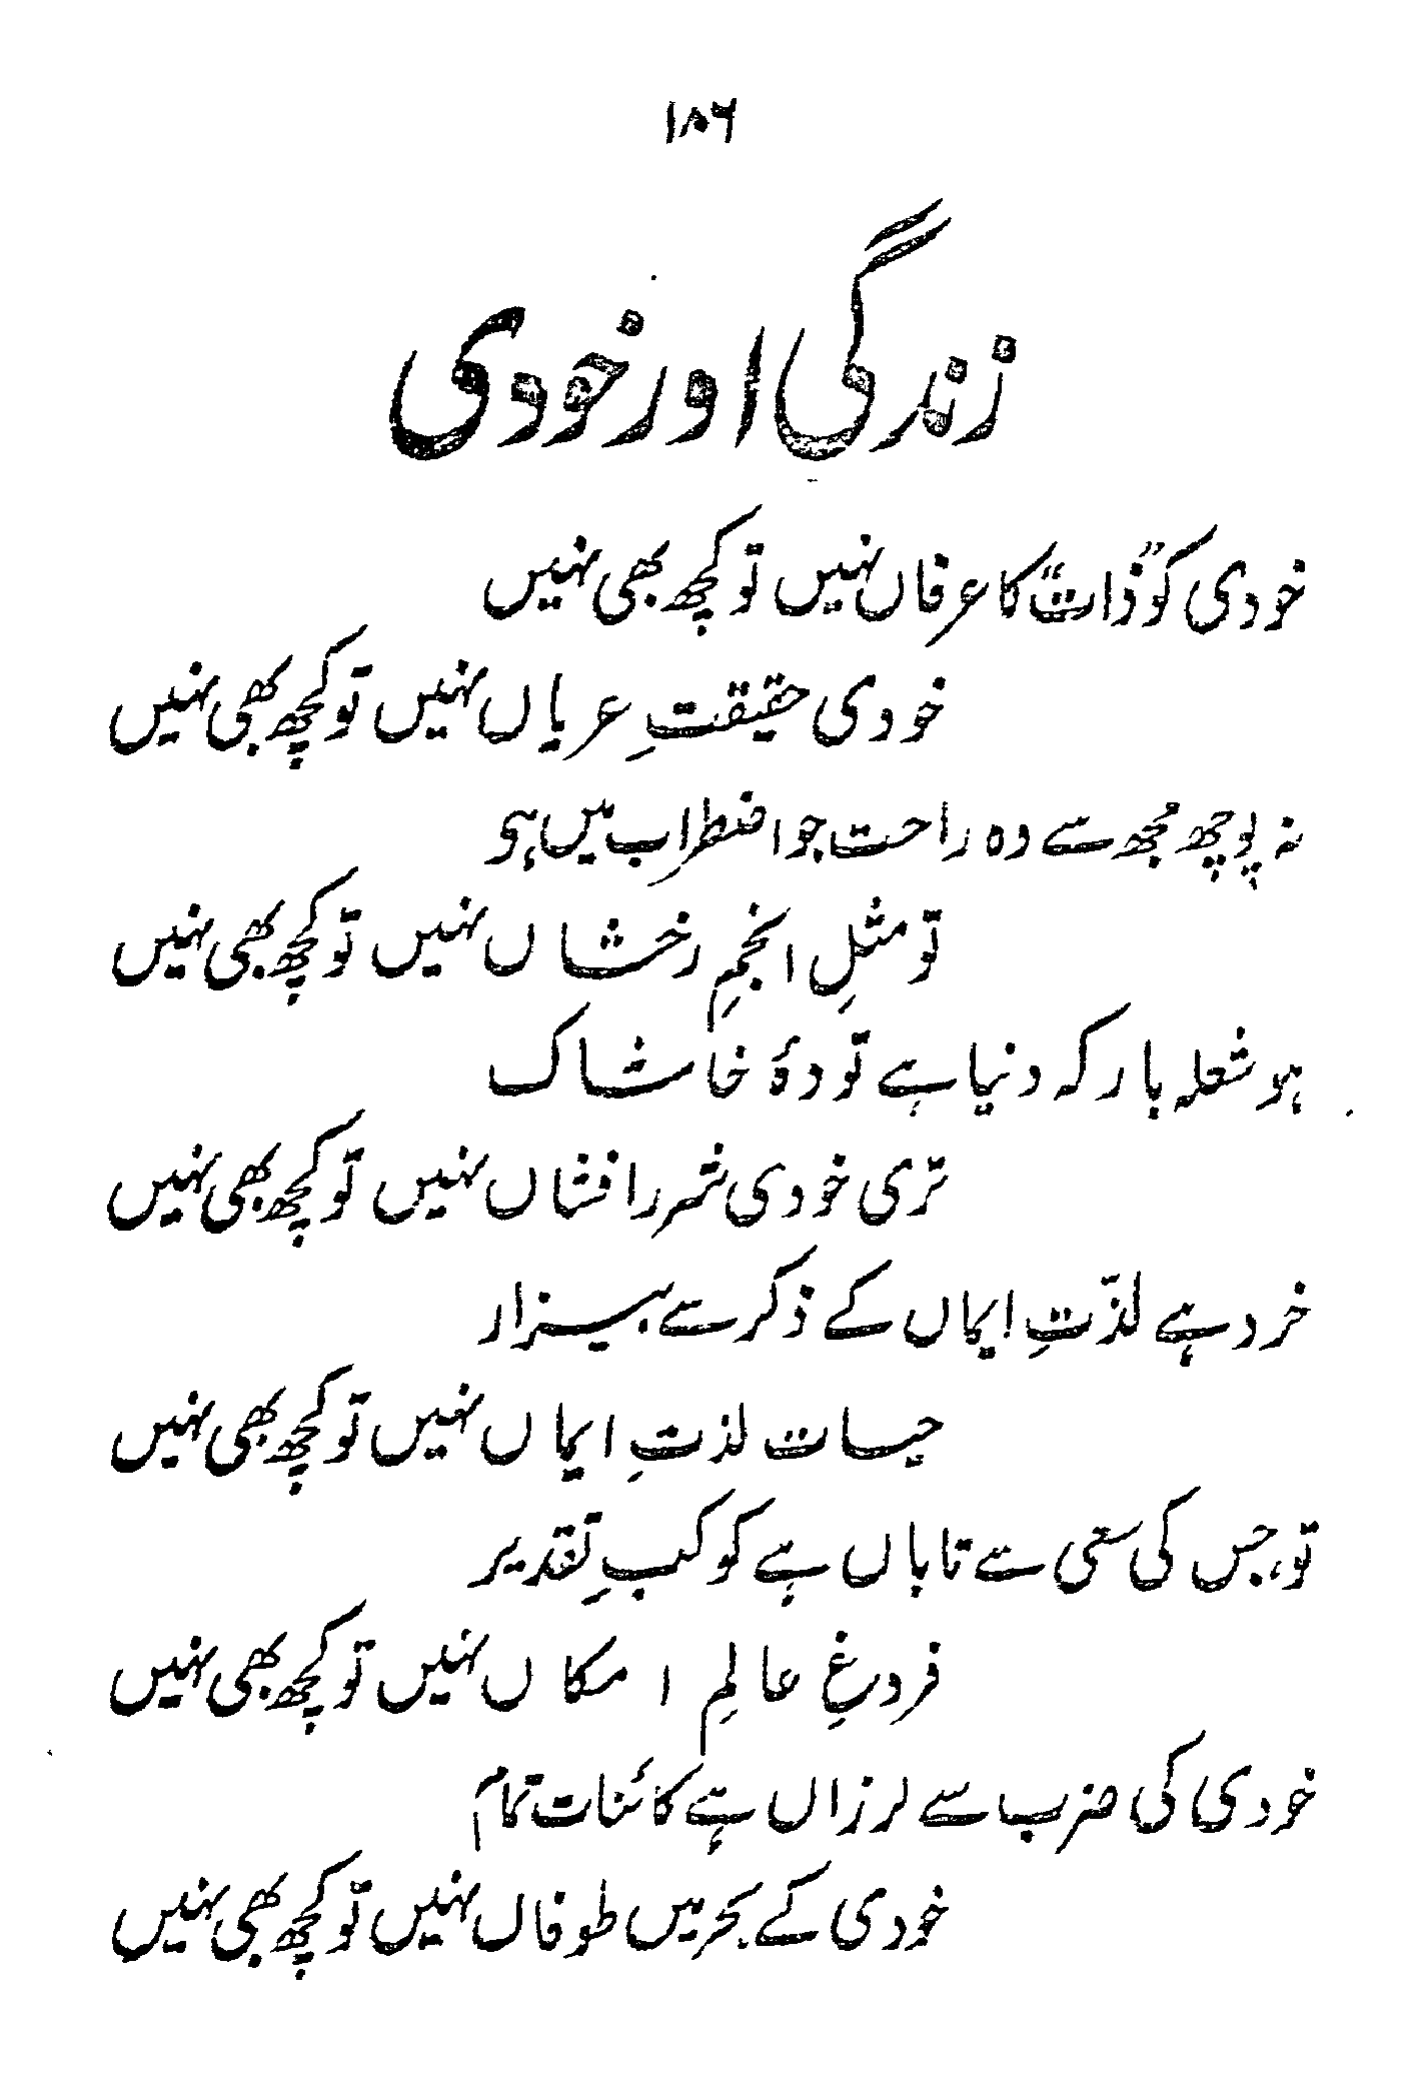 ۱۸۶
زندگی اور خودی
خودی کو "ذات" کا عرفاں نہیں تو کچھ بھی نہیں
خودی حقیقتِ عریاں نہیں تو کچھ بھی نہیں
نہ پوچھ مجھ سے وہ راحت جو اضطراب میں ہو
تو مثلِ انجمِ رخشاں نہیں تو کچھ بھی نہیں
ہو شعلہ بار کہ دنیا ہے تودۂ خاشاک
تری خودی شرر افشاں نہیں تو کچھ بھی نہیں
خرد ہے لذّتِ ایماں کے ذکر سے بیزار
حیات لذتِ ایماں نہیں تو کچھ بھی نہیں
تو، جس کی سعی سے تاباں ہے کوکبِ تقدیر
فروغِ عالمِ امکاں نہیں تو کچھ بھی نہیں
خودی کی ضرب سے لرزاں ہے کائنات تمام
خودی کے بحر میں طوفاں نہیں تو کچھ بھی نہیں